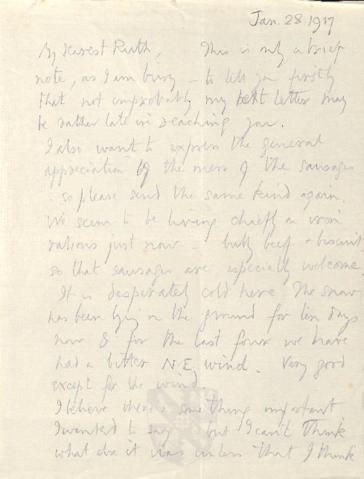 Jan. 28. 1917
My dearest Ruth, This is only a brief
note, as I am busy – to tell you firstly
that not improbably my next letter may
be rather late in reaching you.
I also want to express the general
appreciation of the mess of the sausages
so please send the same kind again.
We seem to be living chiefly on iron
rations just now – bully beef & biscuit
so that sausages are especially welcome
It is desperately cold here. The snow
has been lying on the ground for ten days
now & for the last four we have
had a bitter N.E. wind. Very good
except for the wind.
I believe there's something important
I wanted to say but I can't think
what else it was unless that I think